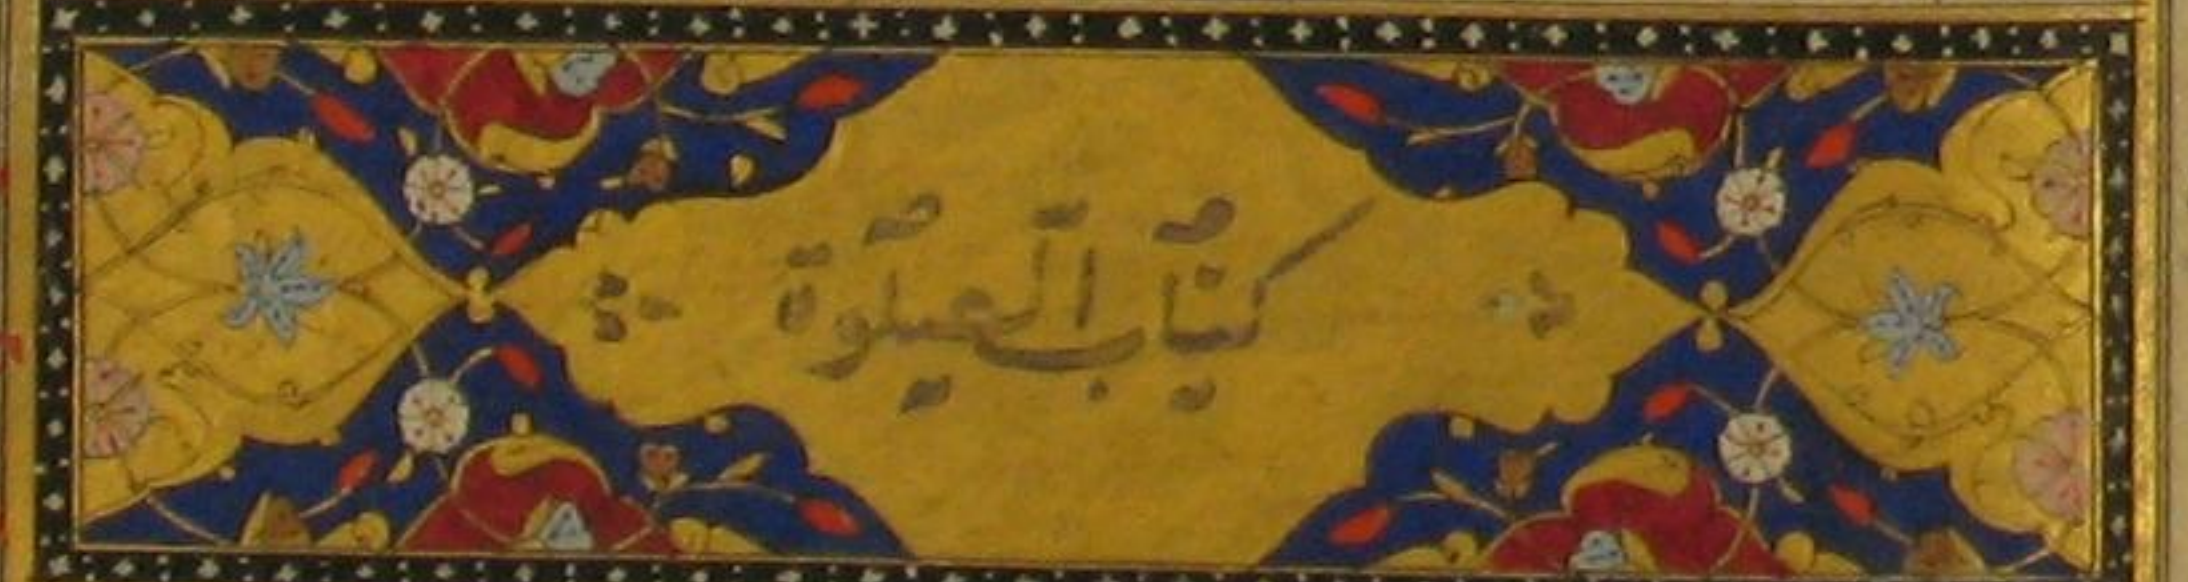 كتاب الصلوة